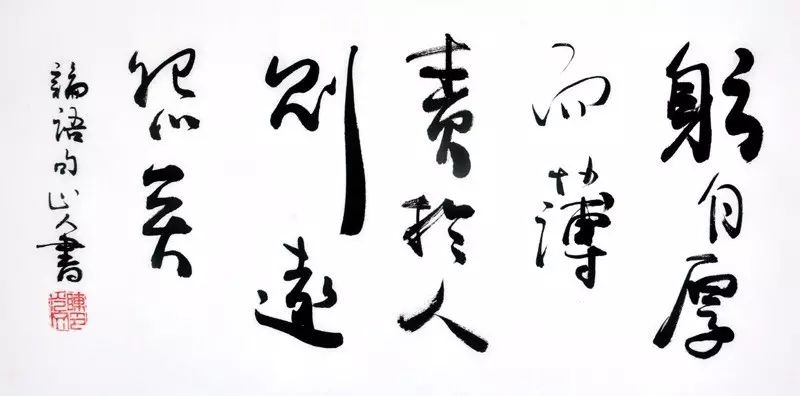 躬自厚
而薄
責於人
則遠
怨矣
論語句山人書